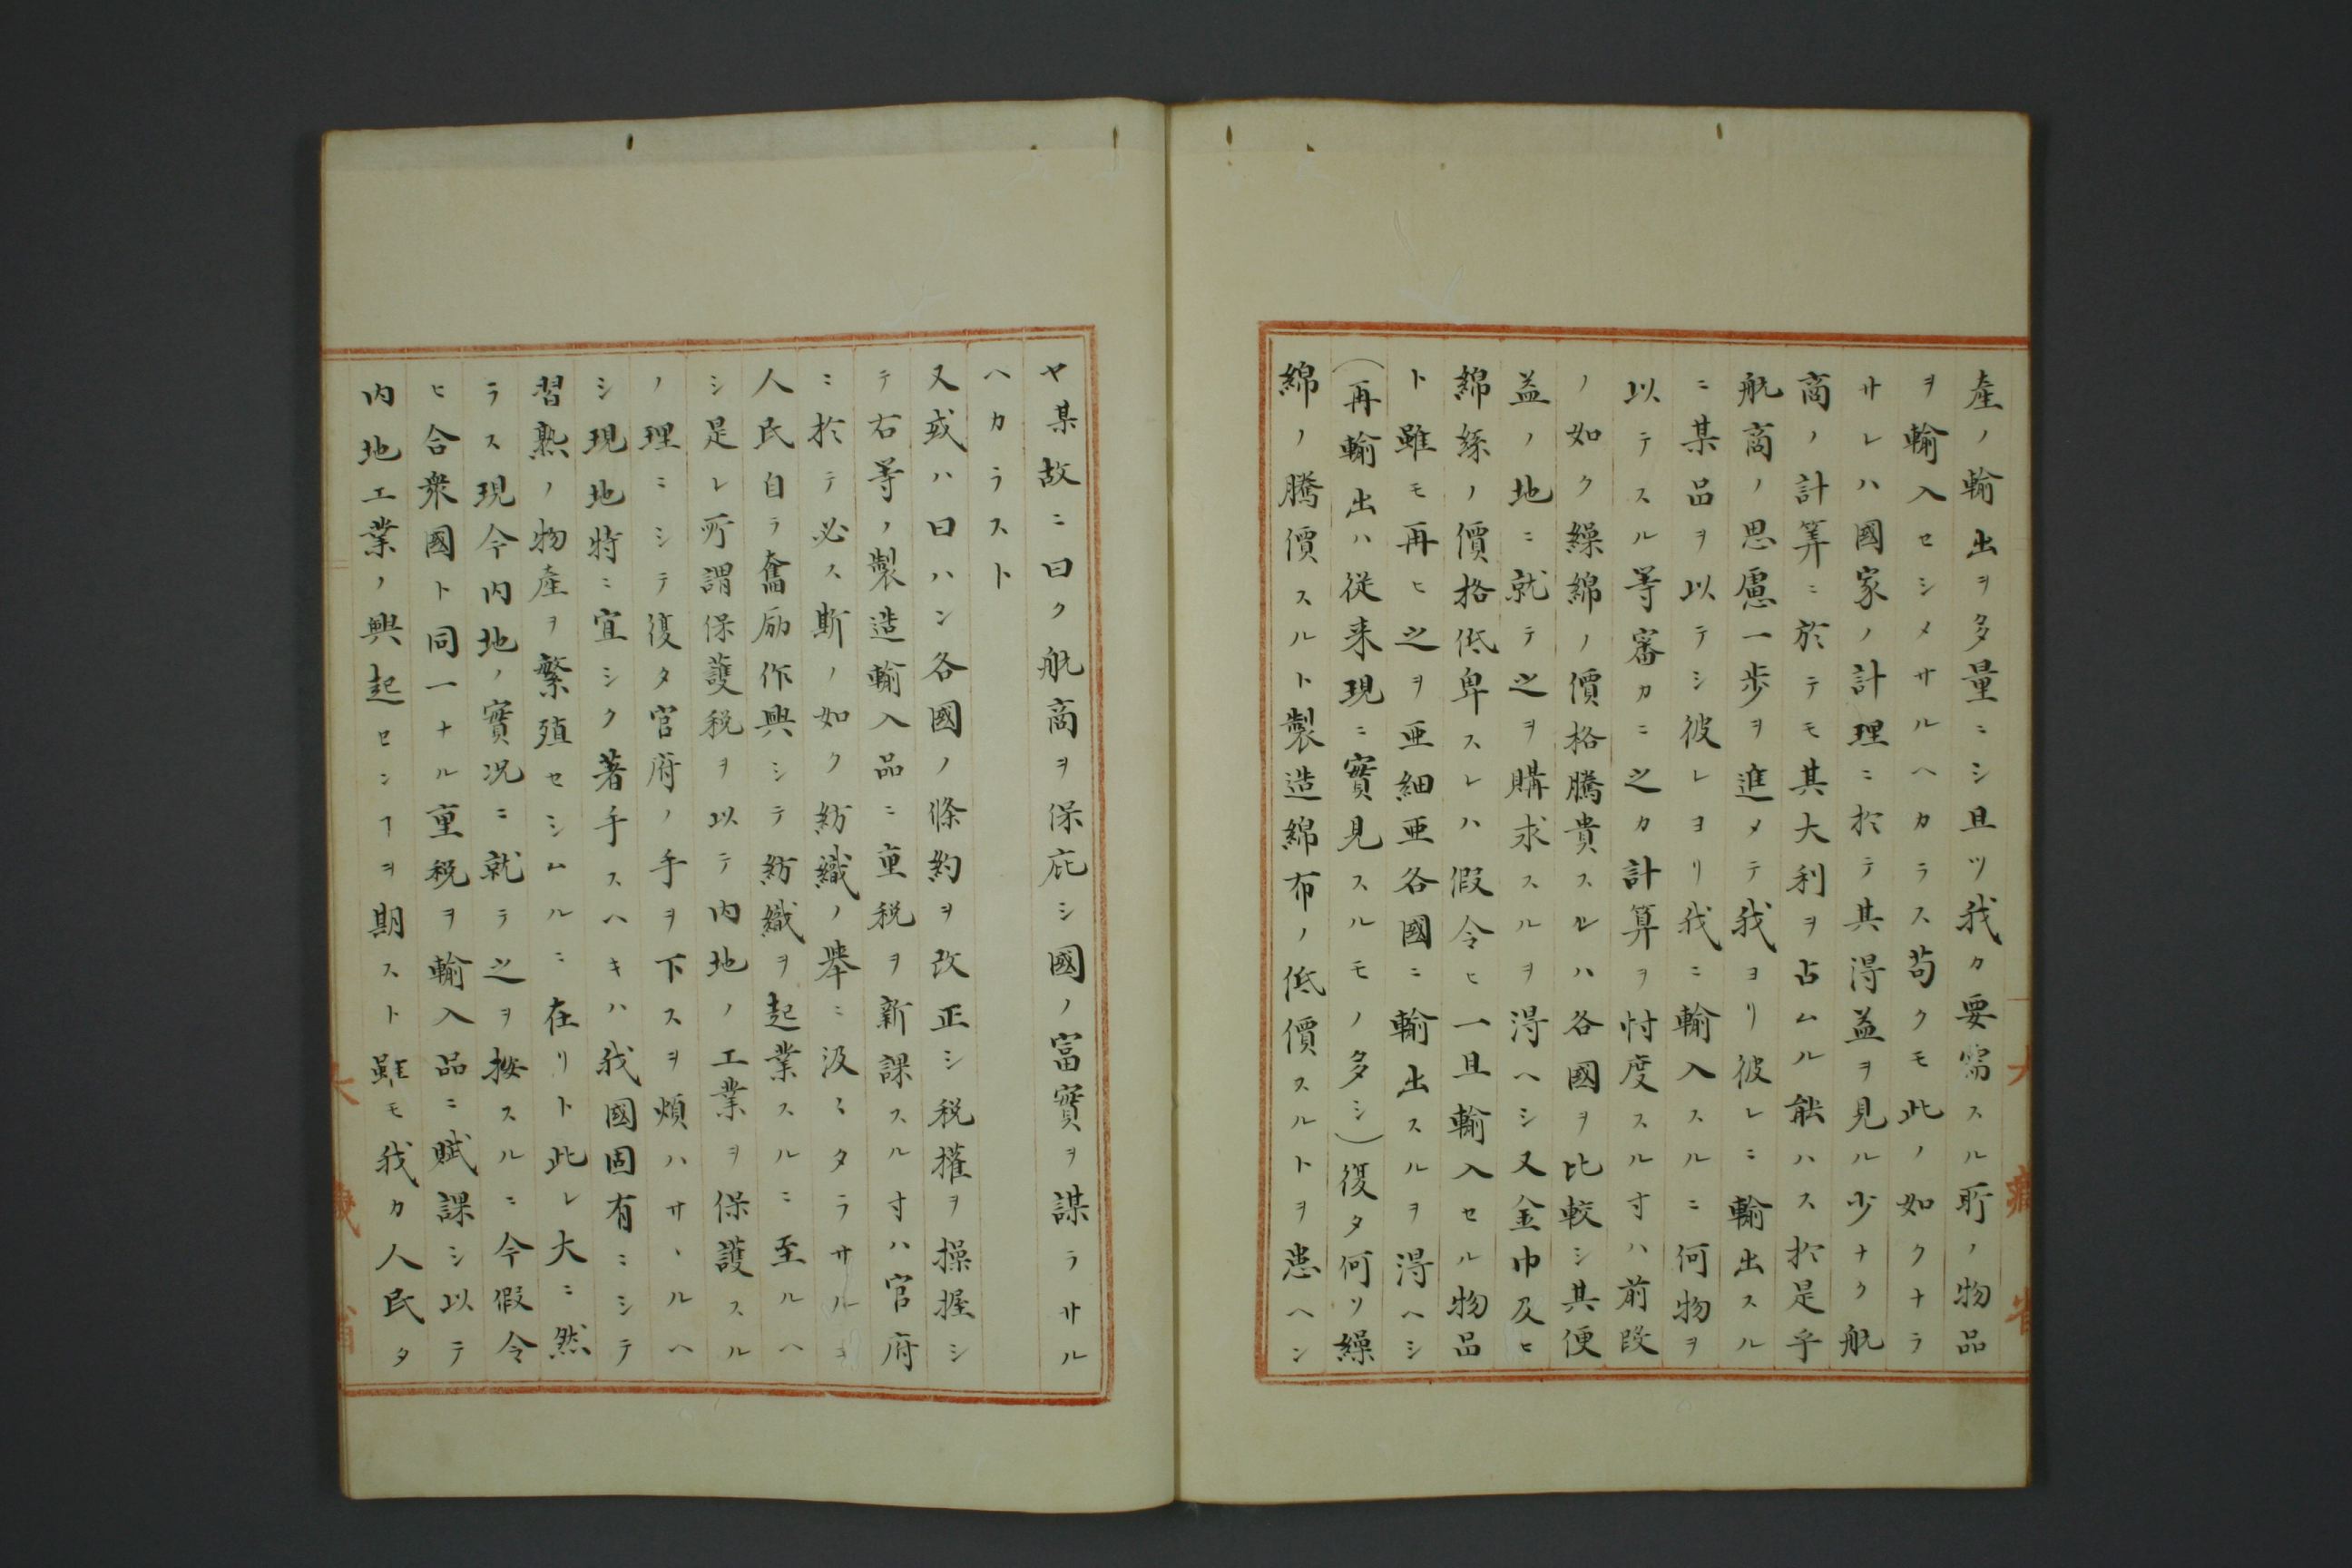 産ノ輸出ヲ多量ニシ且ツ我カ要需スル所ノ物品
ヲ輸入セシメサルヘカラス苟クモ此ノ如クナラ
サレハ國家ノ計理ニ於テ其得益ヲ見ル少ナク航
商ノ計算ニ於テモ其大利ヲ占ムル能ハス於是乎
航商ノ思慮一歩ヲ進メテ我ヨリ彼レニ輸出スル
ニ某品ヲ以テシ彼レヨリ我ニ輸入スルニ何物ヲ
以テスル等審カニ之カ計算ヲ忖度スル寸ハ前段
ノ如ク繰綿ノ價格騰貴スルハ各國ヲ比較シ其便
益ノ地ニ就テ之ヲ購求スルヲ得ヘシ又金巾及ヒ
綿絲ノ價格低卑スレハ假令ヒ一旦輸入セル物品
ト雖モ再ヒ之ヲ亜細亜各國ニ輸出スルヲ得ヘシ
(再輸出ハ従来現ニ實見スルモノ多シ)復タ何ソ繰
綿ノ騰價スルト製造綿布ノ低價スルトヲ患ヘン
ヤ某故ニ曰ク航商ヲ保庇シ國ノ富實ヲ謀ラサル
ヘカラスト
又或ハ曰ハン各國ノ條約ヲ改正シ税権ヲ操握シ
テ右等ノ製造輸入品ニ重税ヲ新課スル寸ハ官府
ニ於テ必ス斯ノ如ク紡織ノ擧ニ汲ミタラサルヲ
人民自ラ奮励作興シテ紡織ヲ起業スルニ至ルヘ
シ是レ所謂保護税ヲ以テ内地ノ工業ヲ保護スル
ノ理ニシテ復タ官府ノ手ヲ下スヲ煩ハサヽルヘ
シ現地特ニ宜シク著手スヘキハ我國固有ニシテ
習熟ノ物産ヲ繁殖セシムルニ在リト此レ大ニ然
ラス現今内地ノ實況ニ就テ之ヲ按スルニ今假令
ヒ合衆國ト同一ナル重税ヲ輸入品ニ賦課シ以テ
内地工業ノ興起センヿヲ期スト雖モ我カ人民タ
大藏省